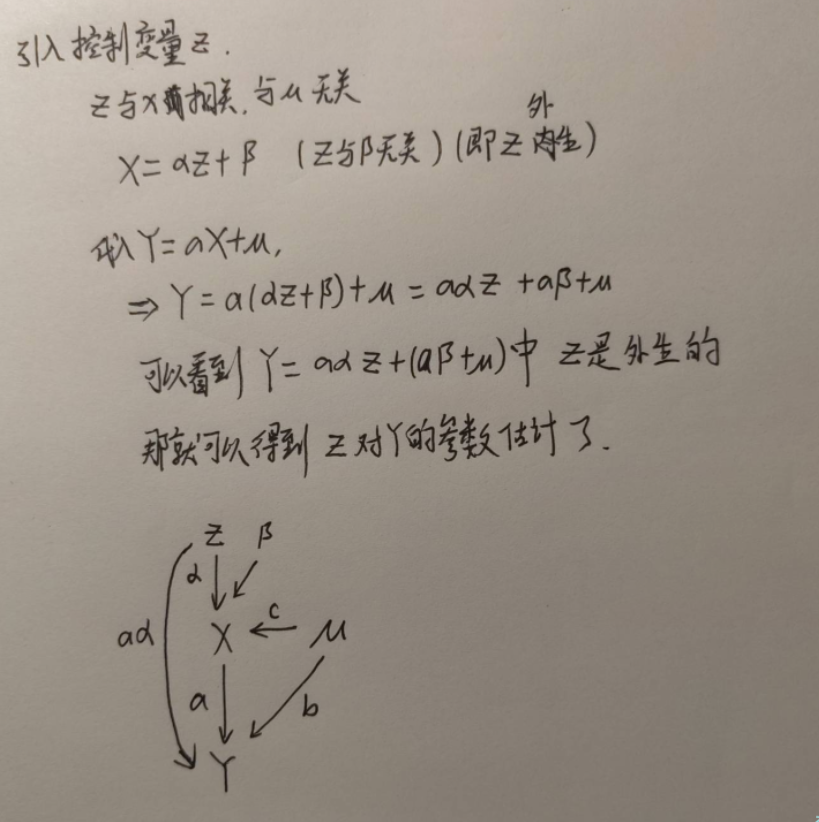 引入控制变量Z.
Z与X相关,与μ无关
外
X=αZ+β (Z与β无关)(即Z内生)
代入Y=aX+μ,
⇒Y=a(αZ+β)+μ=aαZ+aβ+μ
可以看到Y=aαZ+(aβ+μ)中 Z是外生的
那就可以得到Z对Y的参数估计了.
Z β
α
aα X c μ
a b
Y